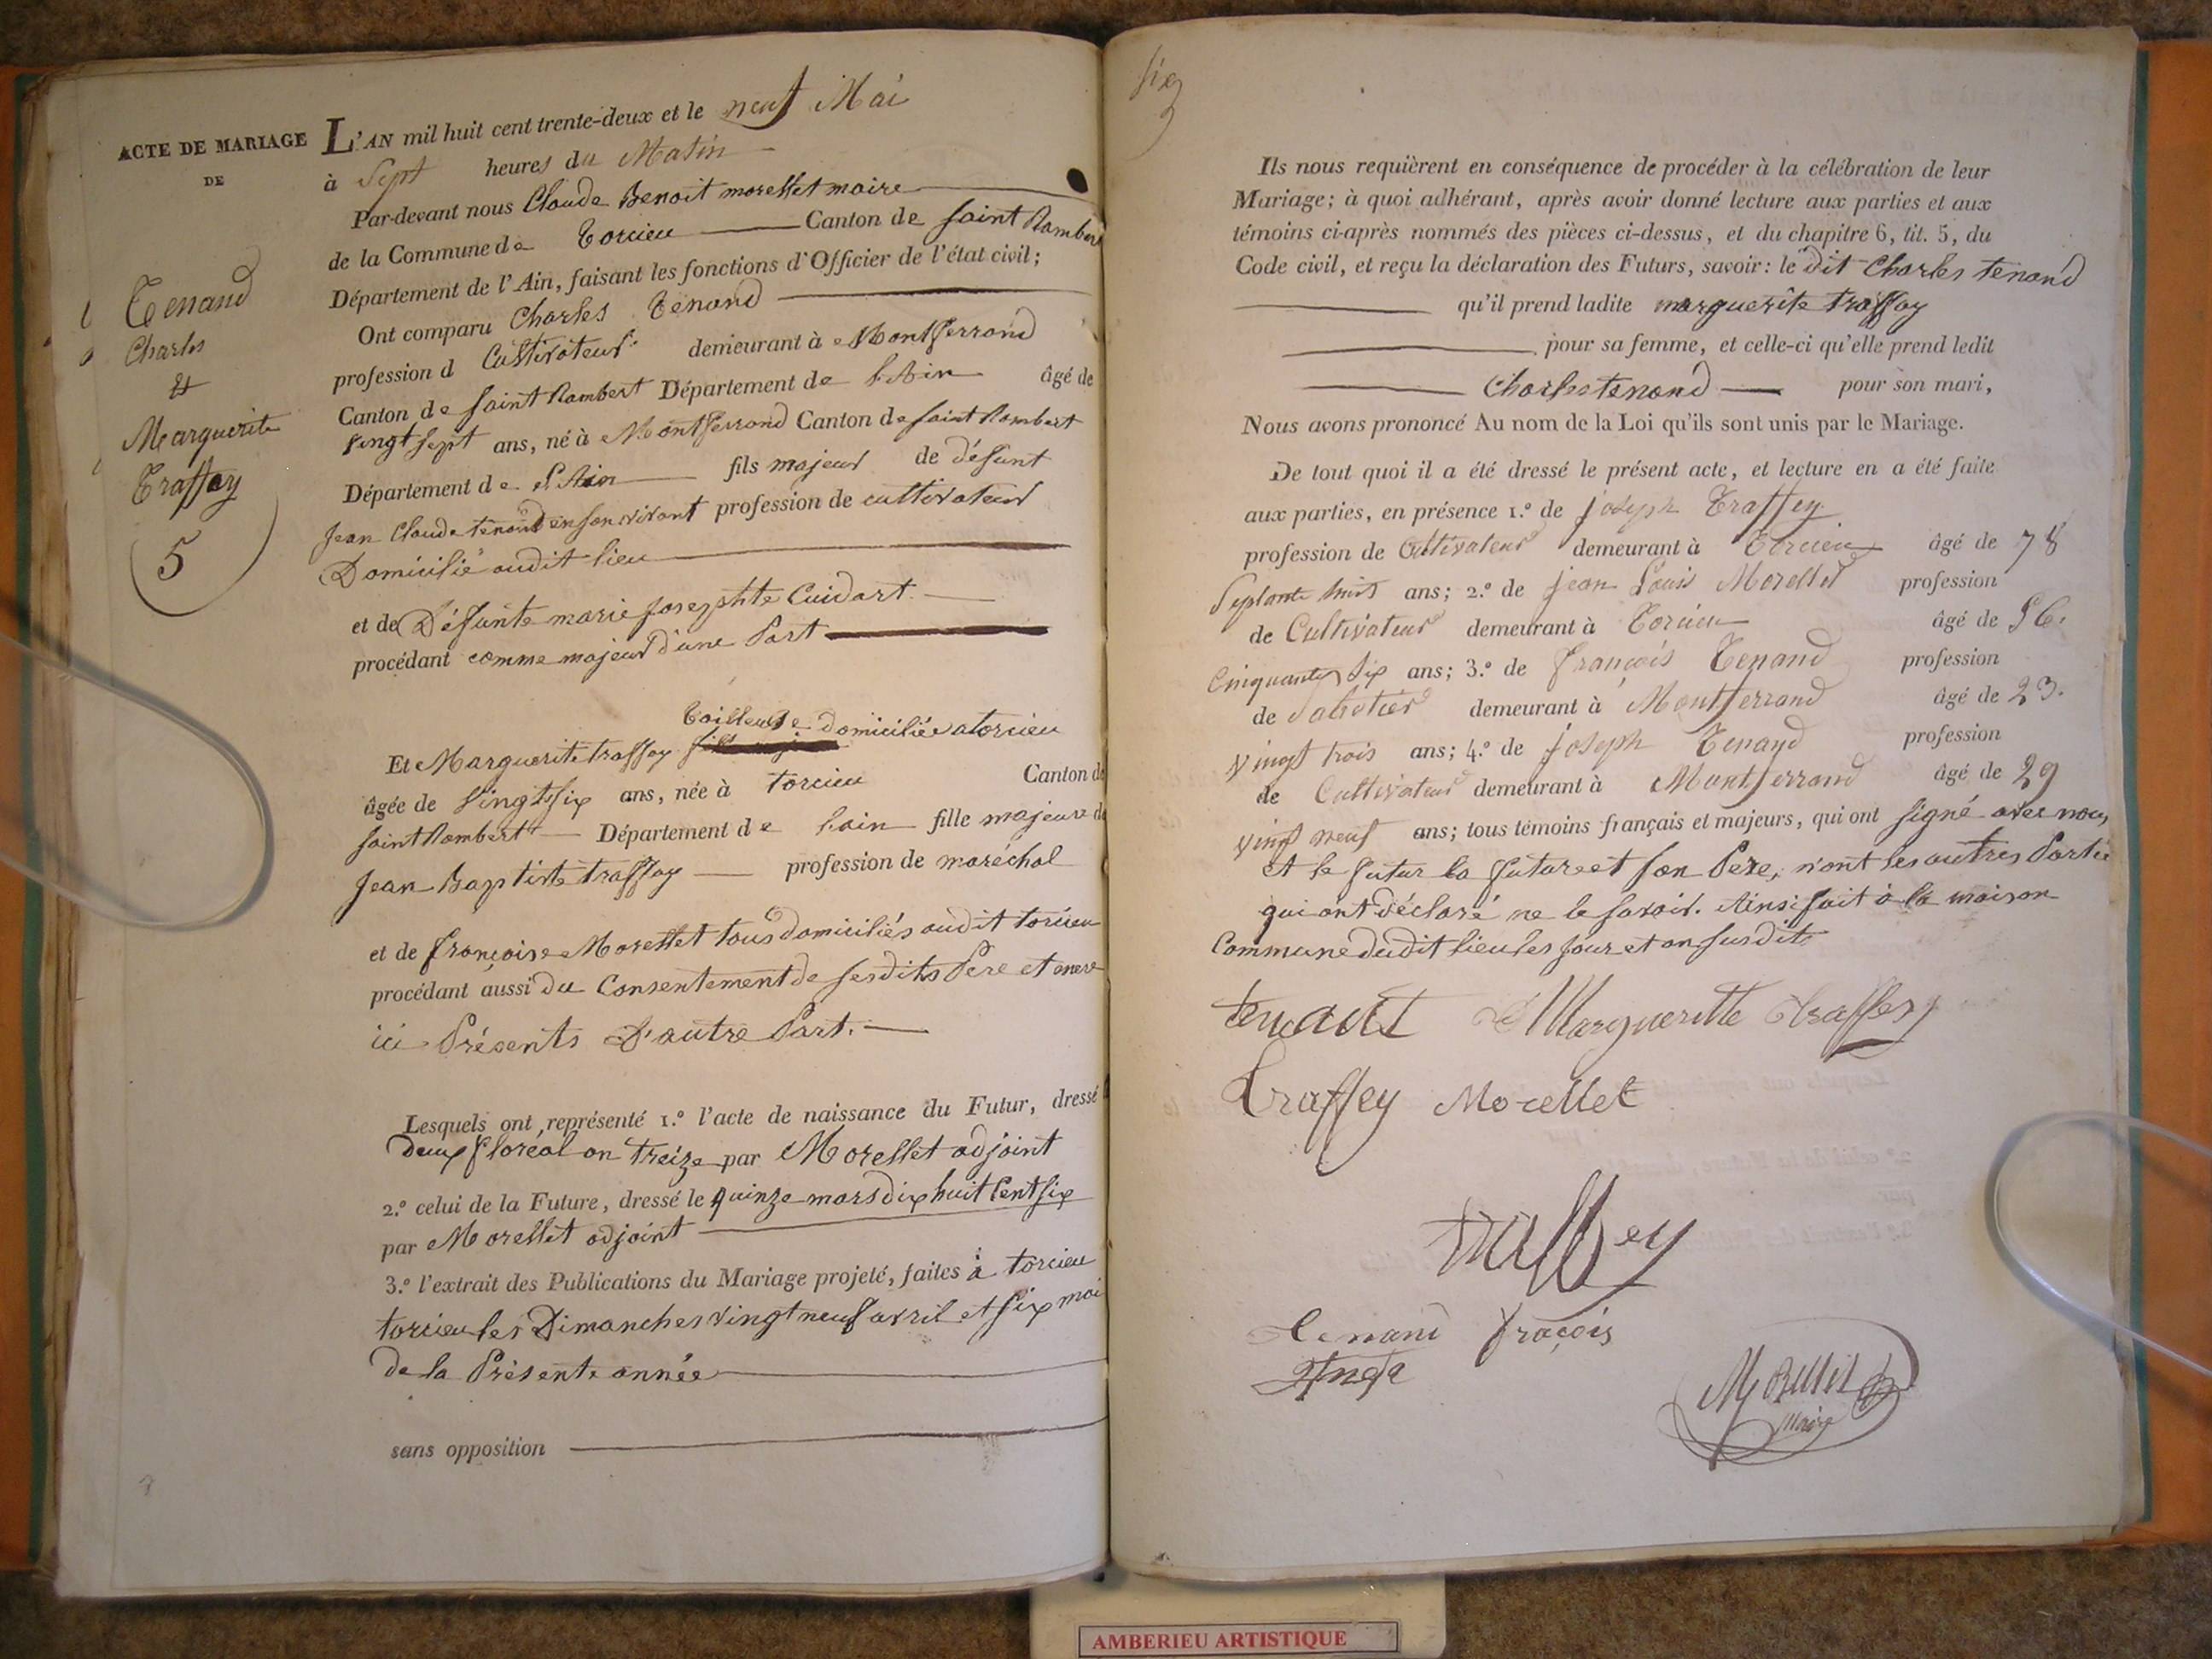 ACTE DE MARIAGE
DE
Tenand
Charles
&
Marguerite
Traffay
5
L'AN mil huit cent trente-deux et le neuf Mai
à Sept heures du Matin
Par-devant nous Claude Benoit morellet maire
de la Commune de Torcieu Canton de Saint Rambert
Département de l'Ain, faisant les fonctions d'Officier de l'état civil;
Ont comparu Charles Tenand
profession d Cultivateur demeurant à Montferrand
Canton de Saint Rambert Département de l'Ain âgé de
vingt sept ans, né à Montferrand Canton de Saint Rambert
Département de l'Ain fils majeur de défunt
Jean Claude tenand en son vivant profession de cultivateur
Domicilié audit lieu
et de Défunte marie Josephte Cuidart
procédant comme majeur d'une Part
Tailleuse domiciliée a torcieu
Et Marguerite traffay
âgée de vingt six ans, née à torcieu Canton de
saint Rambert Département de l'ain fille majeure de
Jean Baptiste traffay profession de maréchal
et de françoise Morellet tous domiciliés audit torcieu
procédant aussi du Consentement de ses dits Pere et mere
ici Présents D'autre Part.
Lesquels ont représenté 1.º l'acte de naissance du Futur, dressé
Deux floréal an treize par Morellet adjoint
2.º celui de la Future, dressé le quinze mars dix huit Cent six
par Morellet adjoint
3.º l'extrait des Publications du Mariage projeté, faites à torcieu
torcieu les Dimanches vingt neuf avril et six mai
de la Présente année
sans opposition
six
Ils nous requièrent en conséquence de procéder à la célébration de leur
Mariage; à quoi adhérant, après avoir donné lecture aux parties et aux
témoins ci-après nommés des pièces ci-dessus, et du chapitre 6, tit. 5, du
Code civil, et reçu la déclaration des Futurs, savoir: le dit Charles tenand
qu'il prend ladite marguerite traffay
pour sa femme, et celle-ci qu'elle prend ledit
Charles tenand pour son mari,
Nous avons prononcé Au nom de la Loi qu'ils sont unis par le Mariage.
De tout quoi il a été dressé le présent acte, et lecture en a été faite
aux parties, en présence 1.º de Joseph Traffey
profession de Cultivateur demeurant à Torcieu âgé de 78
Septante huit ans; 2.º de Jean Louis Morellet profession
de Cultivateur demeurant à Torcieu âgé de 56.
Cinquante Six ans; 3.º de François Tenand profession
de Sabotier demeurant à Montferrand âgé de 23.
vingt trois ans; 4.º de Joseph Tenand profession
de Cultivateur demeurant à Montferrand âgé de 29
vingt neuf ans; tous témoins français et majeurs, qui ont signé avec nous
et le futur la future et son Pere, n'ont les autres Partie
qui ont déclaré ne le savoir. Ainsi fait à la maison
Commune dudit lieu les jour et an susdits
tenant Margueritte traffey
Traffey Morellet
traffey
tenand fracois
Morellet
Maire
AMBERIEU ARTISTIQUE